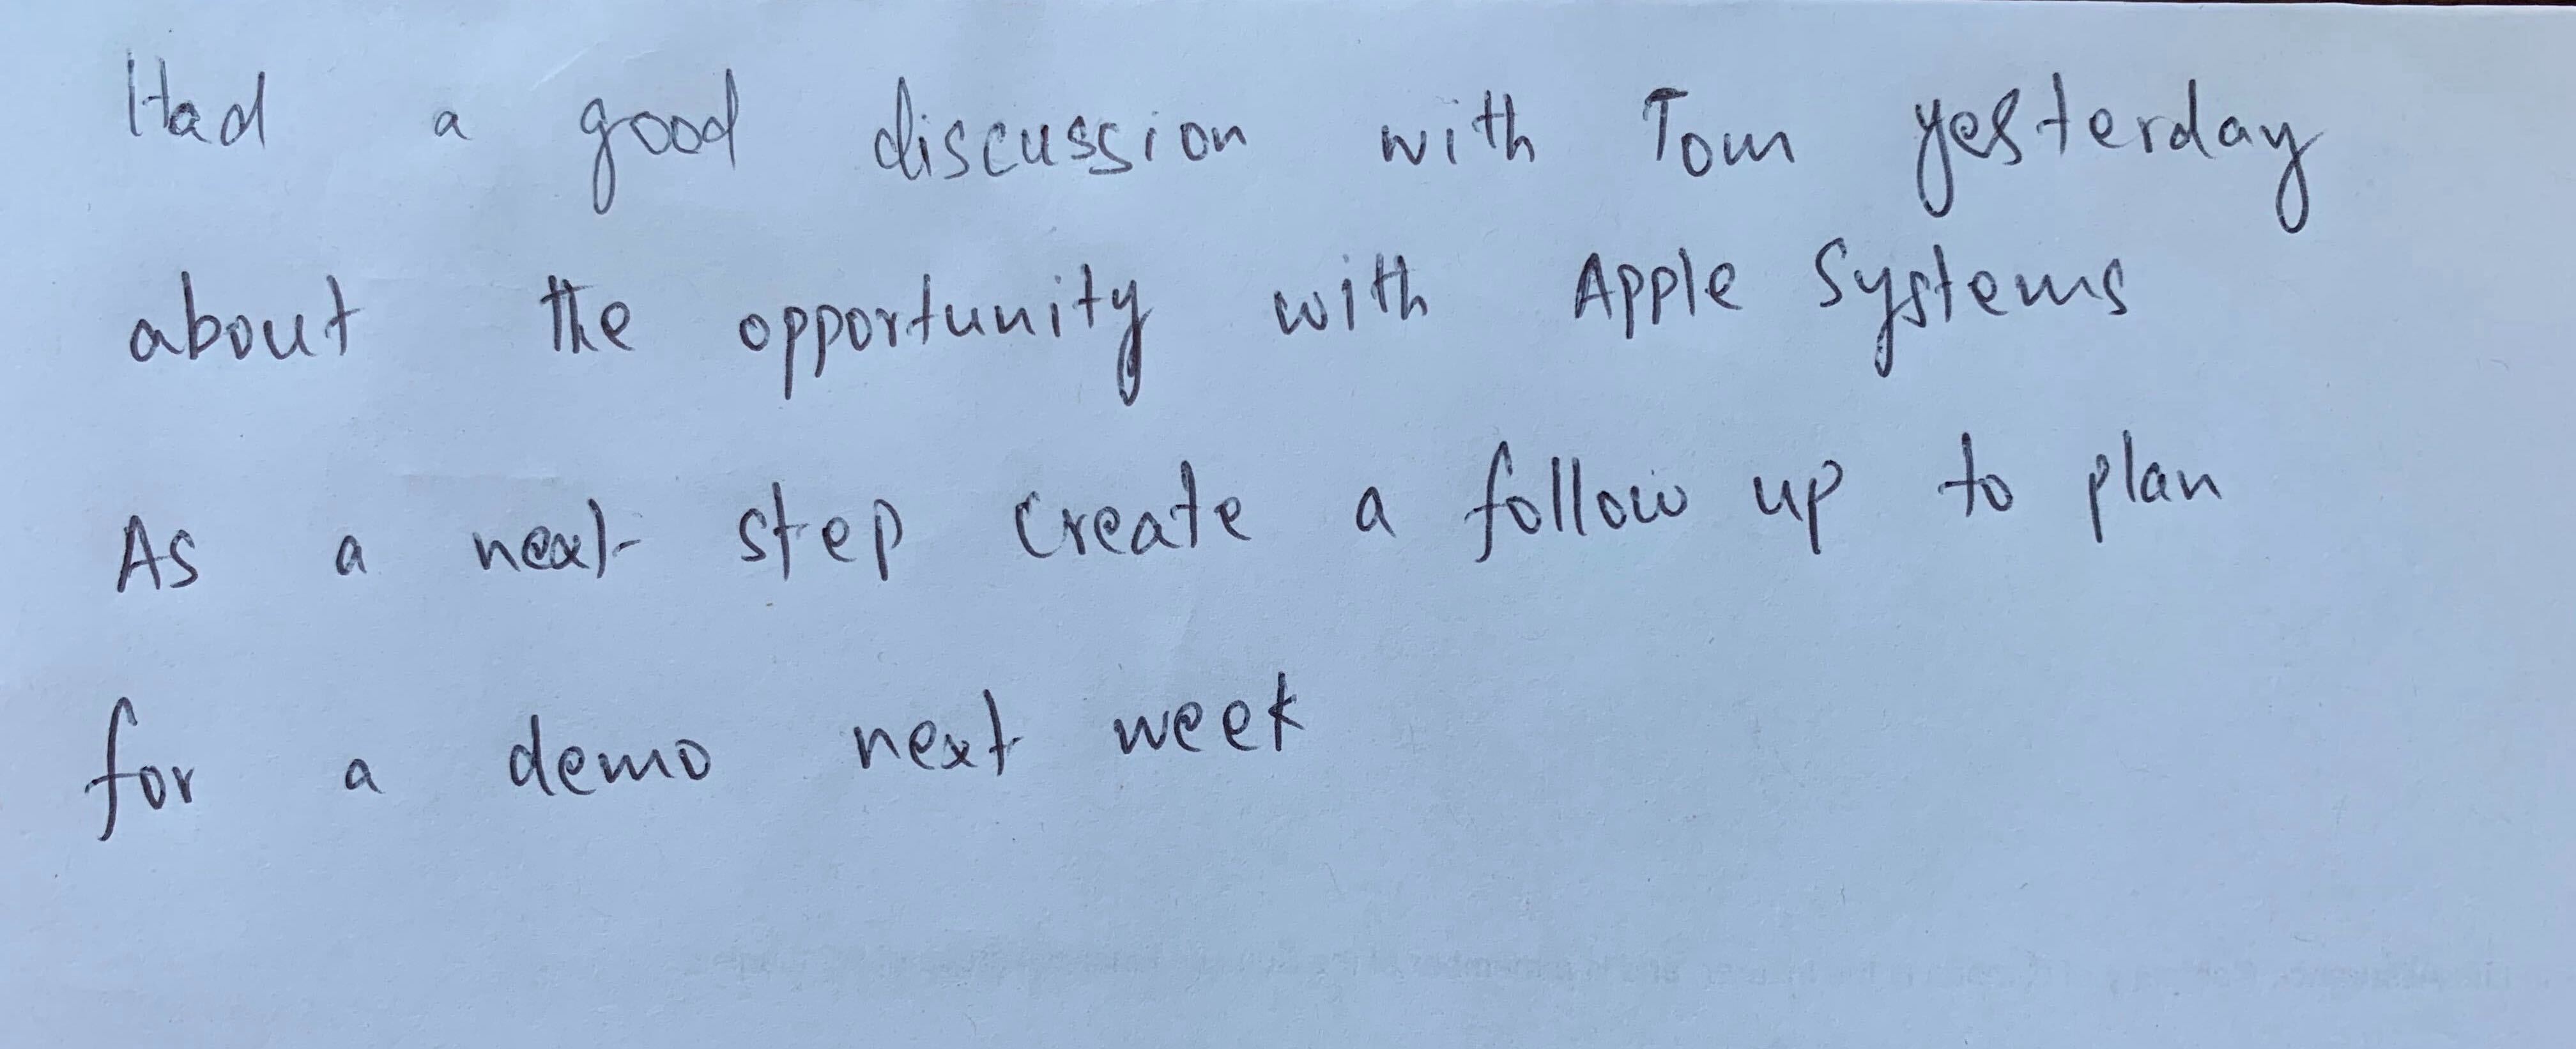 Had a good discussion with Tom yesterday
about the opportunity with Apple Systems
As a next step create a follow up to plan
for a demo next week